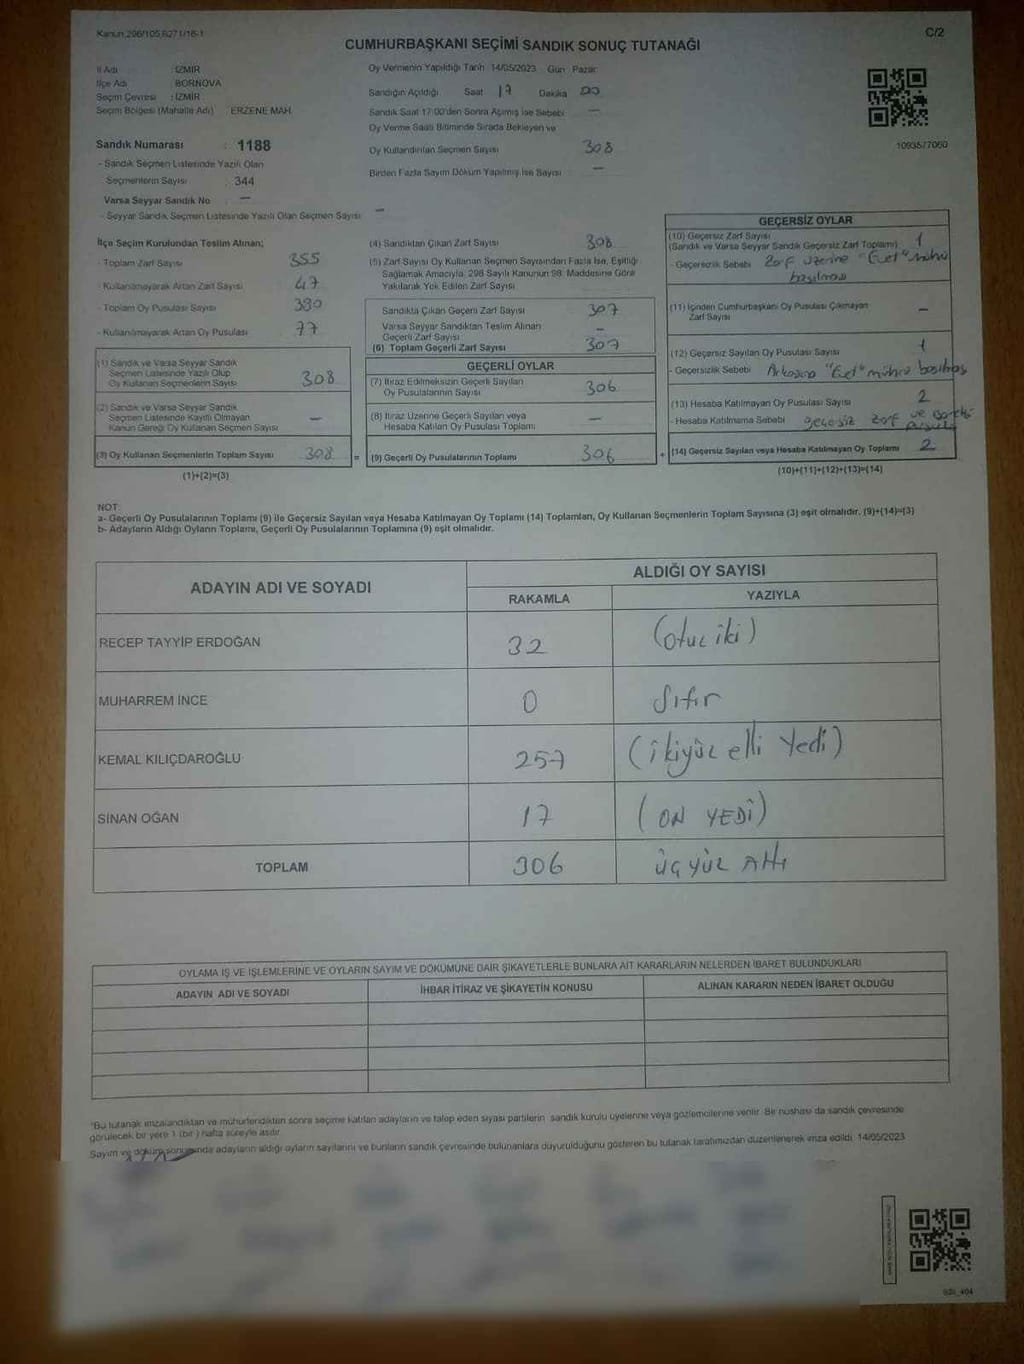 Kanun 298/105,6271/16-1
C/2
CUMHURBAŞKANI SEÇİMİ SANDIK SONUÇ TUTANAĞI
İl Adı : İZMİR
İlçe Adı : BORNOVA
Seçim Çevresi : İZMİR
Seçim Bölgesi (Mahalle Adı) : ERZENE MAH.
Oy Vermenin Yapıldığı Tarih 14/05/2023 Gün Pazar
Sandığın Açıldığı Saat 17 Dakika 00
Sandık Saat 17:00'den Sonra Açılmış İse Sebebi —
Oy Verme Saati Bitiminde Sırada Bekleyen ve
Oy Kullandırılan Seçmen Sayısı 308
Birden Fazla Sayım Döküm Yapılmış İse Sayısı —
Sandık Numarası : 1188
- Sandık Seçmen Listesinde Yazılı Olan
Seçmenlerin Sayısı : 344
Varsa Seyyar Sandık No : —
- Seyyar Sandık Seçmen Listesinde Yazılı Olan Seçmen Sayısı —
İlçe Seçim Kurulundan Teslim Alınan;
- Toplam Zarf Sayısı 355
- Kullanılmayarak Artan Zarf Sayısı 47
- Toplam Oy Pusulası Sayısı
- Kullanılmayarak Artan Oy Pusulası 77
(1) Sandık ve Varsa Seyyar Sandık
Seçmen Listesinde Yazılı Olup
Oy Kullanan Seçmenlerin Sayısı 308
(2) Sandık ve Varsa Seyyar Sandık
Seçmen Listesinde Kayıtlı Olmayan
Kanun Gereği Oy Kullanan Seçmen Sayısı —
(3) Oy Kullanan Seçmenlerin Toplam Sayısı 308 =
(1)+(2)=(3)
(4) Sandıktan Çıkan Zarf Sayısı 308
(5) Zarf Sayısı Oy Kullanan Seçmen Sayısından Fazla İse, Eşitliği
Sağlamak Amacıyla, 298 Sayılı Kanunun 98. Maddesine Göre
Yakılarak Yok Edilen Zarf Sayısı
Sandıkta Çıkan Geçerli Zarf Sayısı 307
Varsa Seyyar Sandıktan Teslim Alınan
Geçerli Zarf Sayısı —
(6) Toplam Geçerli Zarf Sayısı 307
GEÇERLİ OYLAR
(7) İtiraz Edilmeksizin Geçerli Sayılan
Oy Pusulalarının Sayısı 306
(8) İtiraz Üzerine Geçerli Sayılan veya
Hesaba Katılan Oy Pusulası Toplamı —
(9) Geçerli Oy Pusulalarının Toplamı 306 +
GEÇERSİZ OYLAR
(10) Geçersiz Zarf Sayısı
(Sandık ve Varsa Seyyar Sandık Geçersiz Zarf Toplamı) 1
- Geçersizlik Sebebi Zarf üzerine "Evet" mührü
basılması
(11) İçinden Cumhurbaşkanı Oy Pusulası Çıkmayan
Zarf Sayısı —
(12) Geçersiz Sayılan Oy Pusulası Sayısı 1
- Geçersizlik Sebebi Arkasına "Evet" mührü basılması
(13) Hesaba Katılmayan Oy Pusulası Sayısı 2
- Hesaba Katılmama Sebebi geçersiz zarf ve
pusula
(14) Geçersiz Sayılan veya Hesaba Katılmayan Oy Toplamı 2
(10)+(11)+(12)+(13)=(14)
NOT:
a- Geçerli Oy Pusulalarının Toplamı (9) ile Geçersiz Sayılan veya Hesaba Katılmayan Oy Toplamı (14) Toplamları, Oy Kullanan Seçmenlerin Toplam Sayısına (3) eşit olmalıdır. (9)+(14)=(3)
b- Adayların Aldığı Oyların Toplamı, Geçerli Oy Pusulalarının Toplamına (9) eşit olmalıdır.
ADAYIN ADI VE SOYADI
ALDIĞI OY SAYISI
RAKAMLA YAZIYLA
RECEP TAYYİP ERDOĞAN 32 (otuz iki)
MUHARREM İNCE 0 Sıfır
KEMAL KILIÇDAROĞLU 257 (ikiyüz elli Yedi)
SİNAN OĞAN 17 (ON YEDİ)
TOPLAM 306 üçyüz Altı
OYLAMA İŞ VE İŞLEMLERİNE VE OYLARIN SAYIM VE DÖKÜMÜNE DAİR ŞİKAYETLERLE BUNLARA AİT KARARLARIN NELERDEN İBARET BULUNDUKLARI
ADAYIN ADI VE SOYADI İHBAR İTİRAZ VE ŞİKAYETİN KONUSU ALINAN KARARIN NEDEN İBARET OLDUĞU
"Bu tutanak imzalandıktan ve mühürlendikten sonra seçime katılan adayların ve talep eden siyasi partilerin sandık kurulu üyelerine veya gözlemcilerine verilir. Bir nüshası da sandık çevresinde
görülecek bir yere 1 (bir) hafta süreyle asılır.
Sayım ve döküm sonucunda adayların aldığı oyların sayılarını ve bunların sandık çevresinde bulunanlara duyurulduğunu gösteren bu tutanak tarafımızdan düzenlenerek imza edildi. 14/05/2023